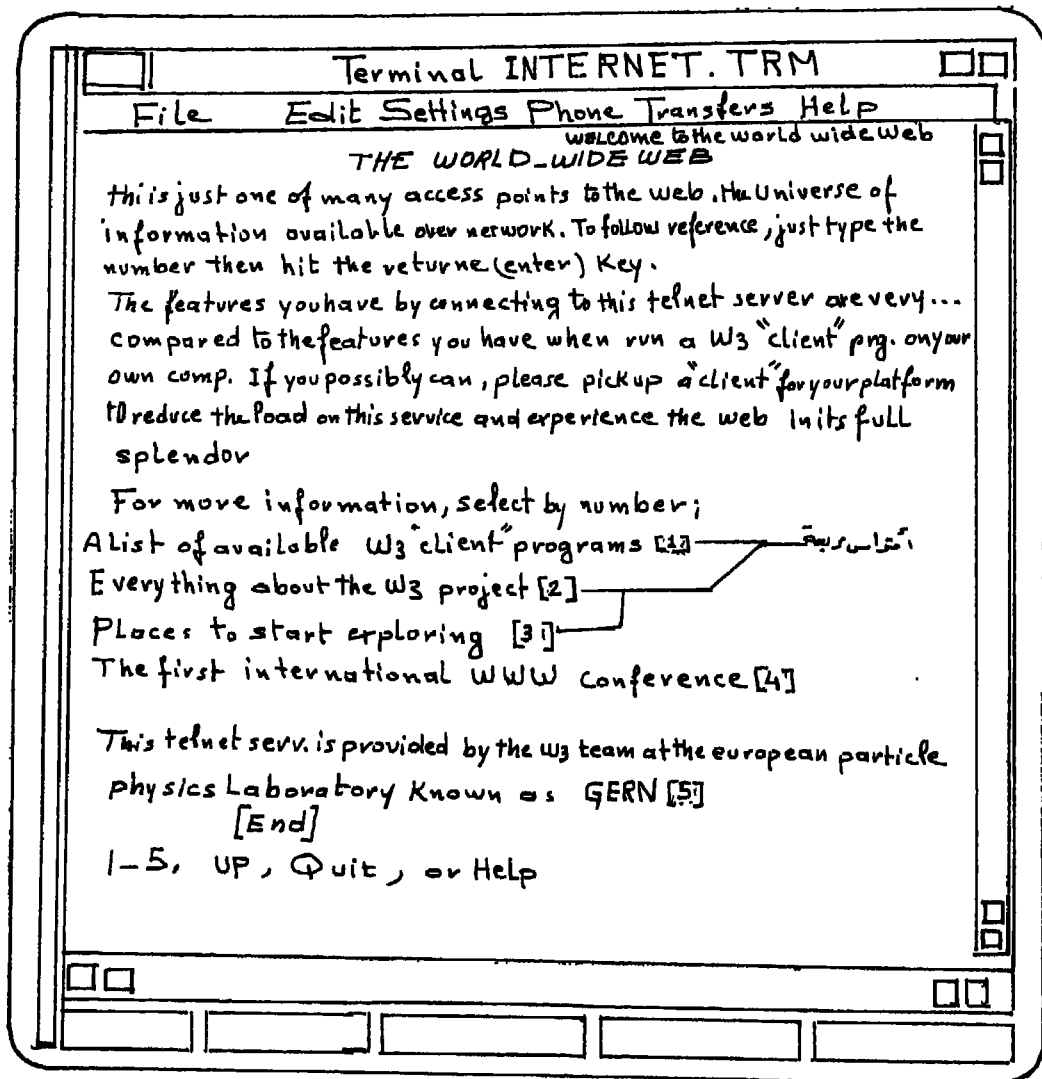 Terminal INTERNET.TRM
File Edit Settings Phone Transfers Help
welcome to the world wide web
THE WORLD_WIDE WEB
thi is just one of many access points to the web. the Universe of
information available over network. To follow reference, just type the
number then hit the returne (enter) Key.
The features you have by connecting to this telnet server are very...
compared to the features you have when run a W3 "client" prg. on your
own comp. If you possibly can, please pick up a "client" for your platform
to reduce the load on this service and experience the web in its full
splendor
For more information, select by number;
A List of available W3 "client" programs [1]
Everything about the W3 project [2]
Places to start exploring [3]
The first international WWW conference [4]
This telnet serv. is provided by the W3 team at the european particle
physics Laboratory Known as GERN [5]
[End]
1-5, UP, Quit, or Help